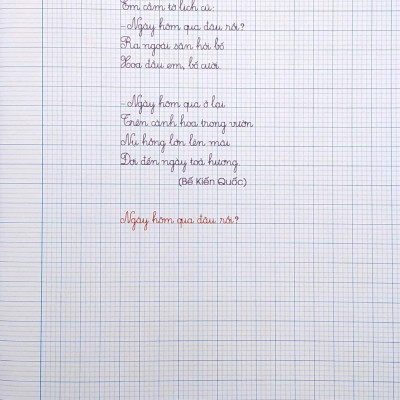 Em cầm tờ lịch cũ:
- Ngày hôm qua đâu rồi?
Ra ngoài sân hỏi bố
Xoa đầu em, bố cười.
- Ngày hôm qua ở lại
Trên cành hoa trong vườn
Nụ hồng lớn lên mãi
Đợi đến ngày toả hương.
(Bế Kiến Quốc)
Ngày hôm qua đâu rồi?